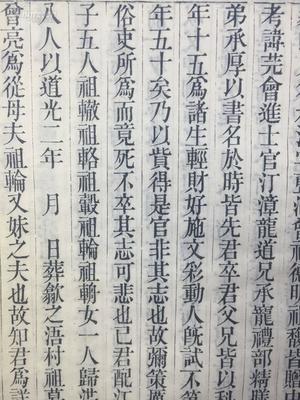 祖馥皆贈中
考諱芫會進士官汀漳龍道兄承龍禮部精膳
弟承厚以書名於時皆先君卒君父兄皆以科
年十五爲諸生輕財好施文彩動人旣試不第
年五十矣乃以貲得是官非其志也故彌策厲
俗吏所爲而竟死不卒其志可悲也已君配江
子五人祖轍祖輅祖轂祖輪祖女一人歸洪
八人以道光二年 月 日葬歙之浯村祖墓
曾亮爲從母夫祖輪又妹之夫也故知君爲